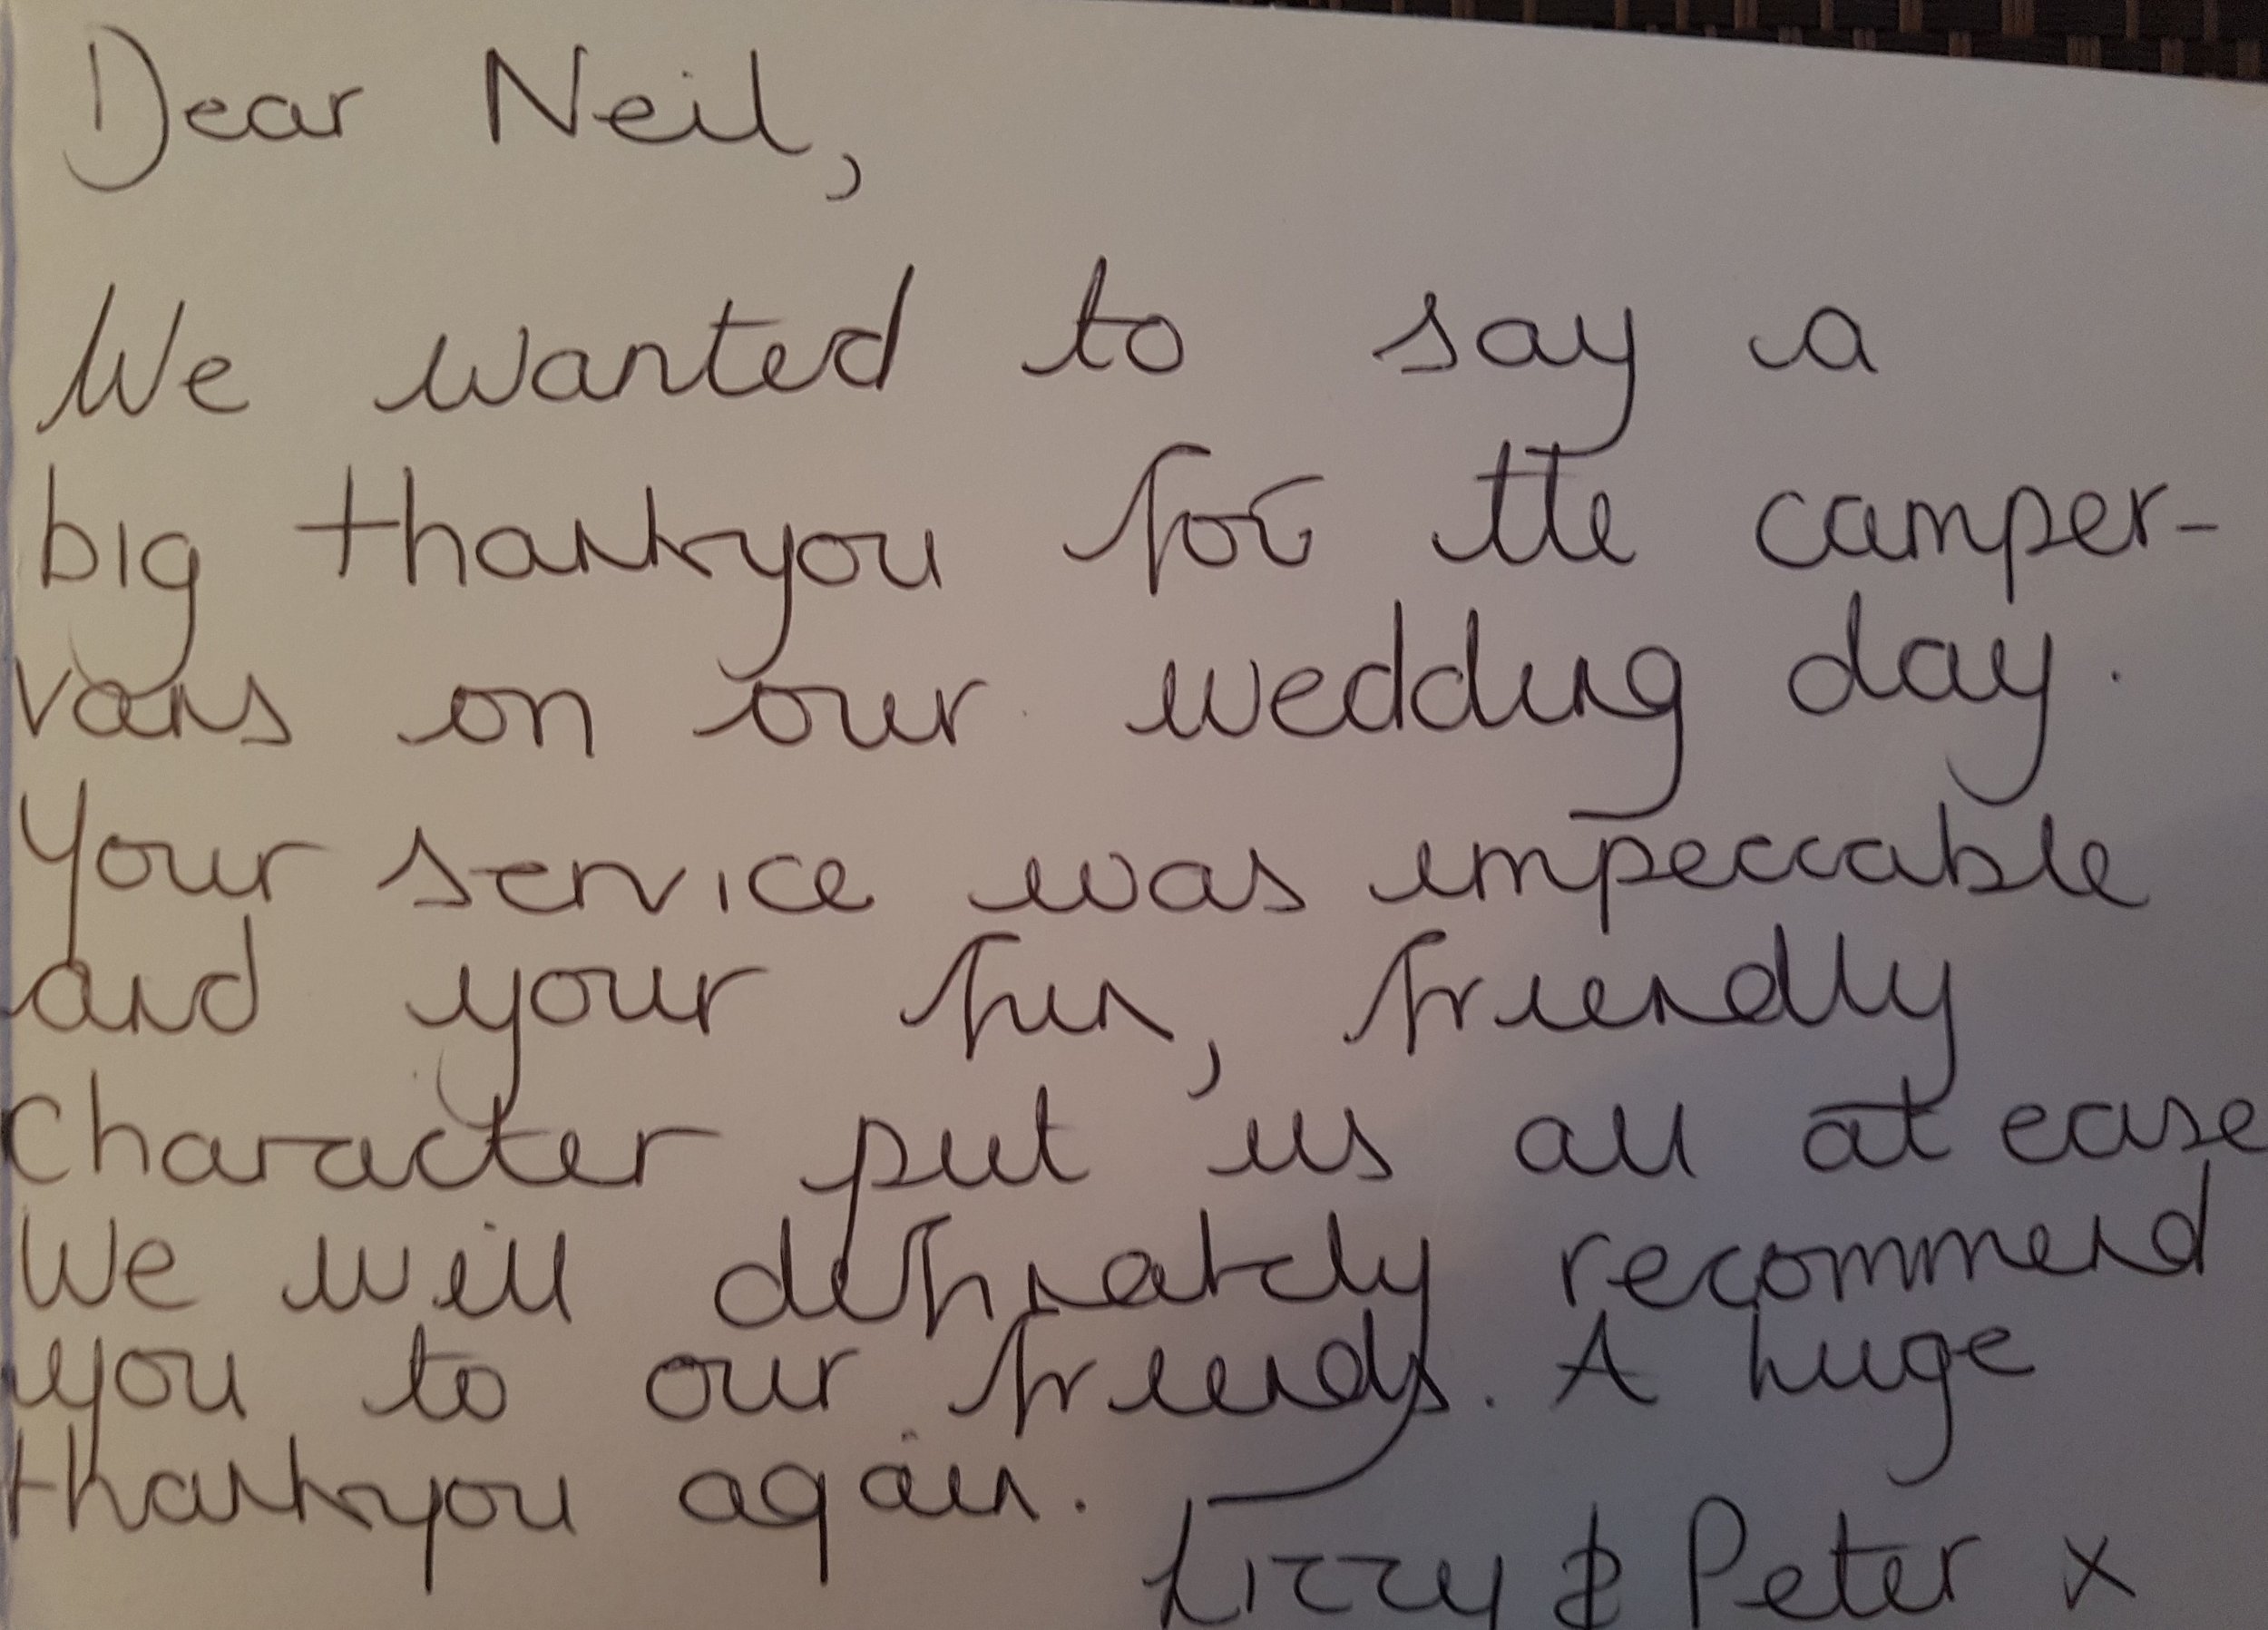 Dear Neil,
We wanted to say a
big thankyou for the camper-
vans on our wedding day.
Your service was impeccable
and your fun, friendly
character put us all at ease
We will definately recommend
you to our friends. A huge
thankyou again.
Lizzy & Peter x